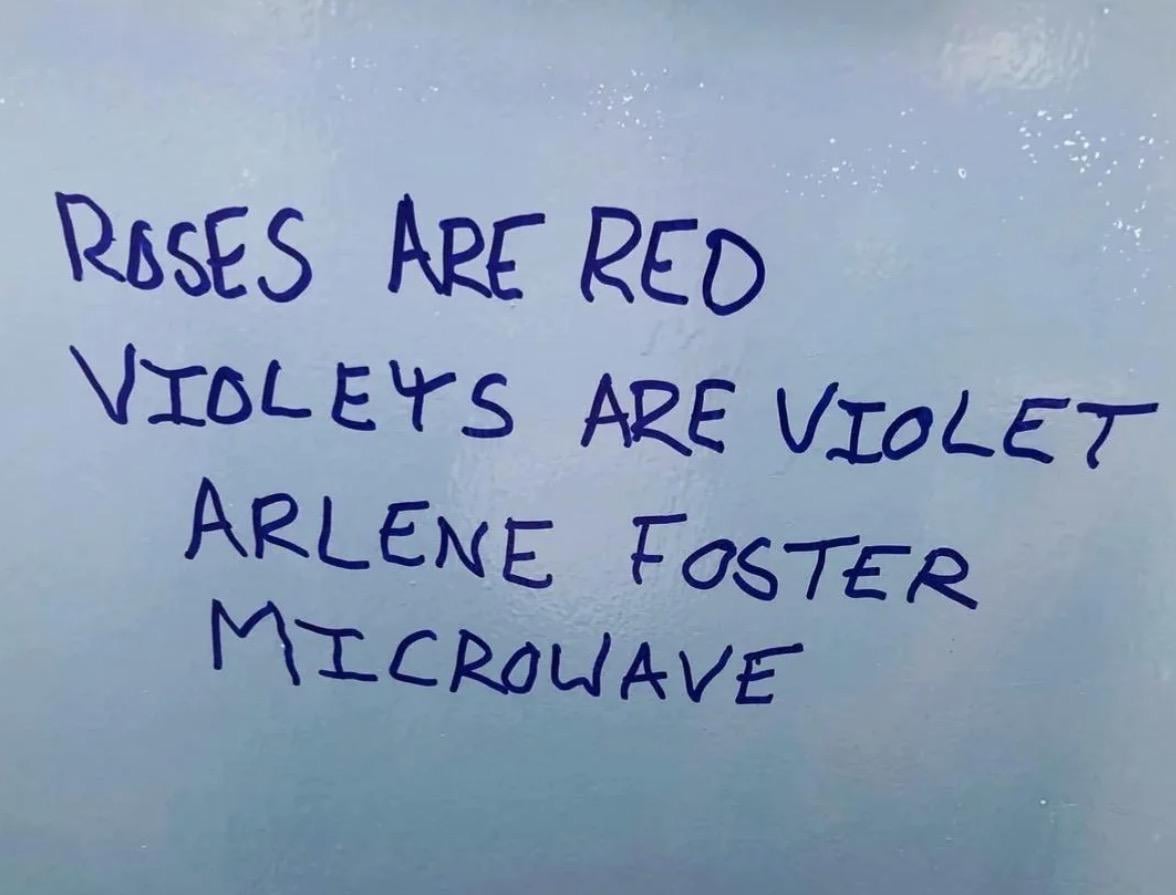 ROSES ARE RED
VIOLETS ARE VIOLET
ARLENE FOSTER
MICROWAVE